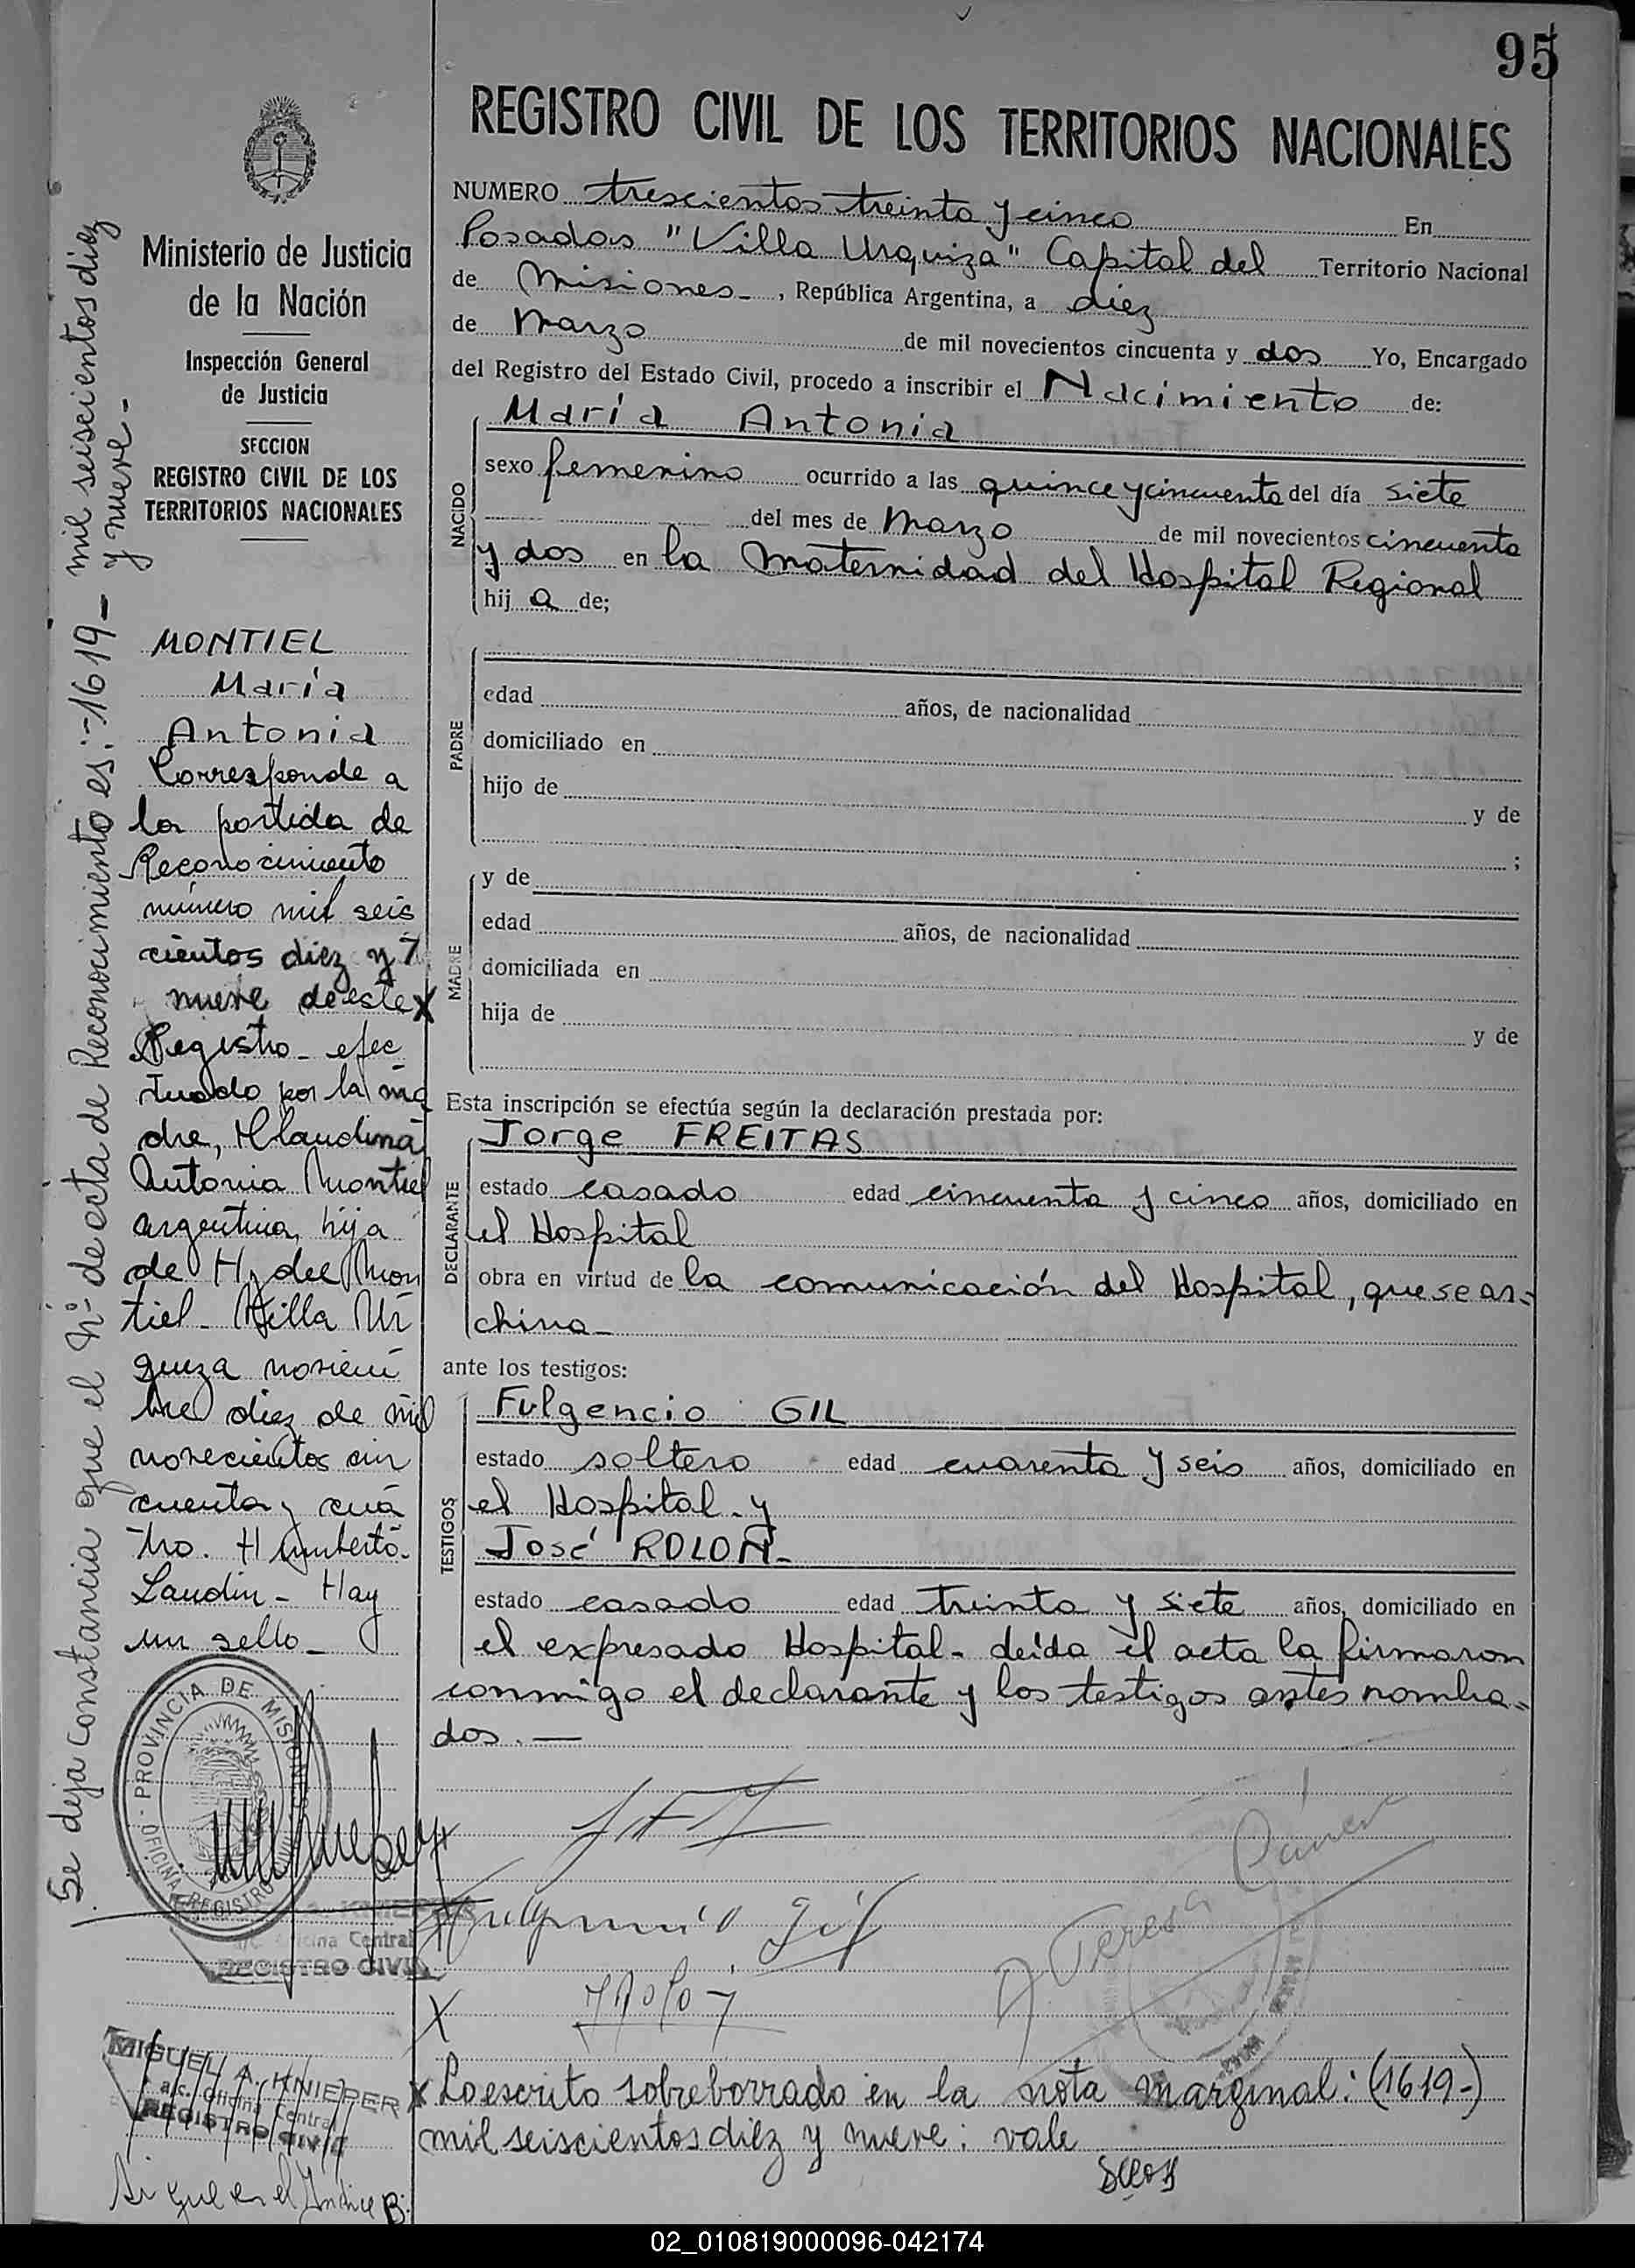 95
REGISTRO CIVIL DE LOS TERRITORIOS NACIONALES
Ministerio de Justicia
de la Nación
Inspección General
de Justicia
SECCION
REGISTRO CIVIL DE LOS
TERRITORIOS NACIONALES
MONTIEL
María
Antonia
Corresponde a
la partida de
Reconocimiento
número mil seis
cientos diez y
nueve de este X
Registro - efec
tuado por la ma
dre, Claudina
Antonia Montiel
argentina, hija
de H. del Mon
tiel - Villa Ur
quiza noviem
bre diez de mil
novecientos cin
cuenta y cua
tro. Humberto
Landin - Hay
un sello -
PROVINCIA DE MISIONES
OFICINA REGISTRO CIVIL
a/c Oficina Central
REGISTRO CIVIL
MIGUEL A. KNIEPER
a/c. Oficina Central
REGISTRO CIVIL
Sigue en el Indice B:
Se deja constancia que el Nº de acta de Reconocimiento es: -1619- mil seiscientos diez
y nueve.-
NUMERO trescientos treinta y cinco En
Posadas "Villa Urquiza" Capital del Territorio Nacional
de Misiones-, República Argentina, a diez
de Marzo de mil novecientos cincuenta y dos Yo, Encargado
del Registro del Estado Civil, procedo a inscribir el Nacimiento de:
María Antonia
NACIDO
sexo femenino ocurrido a las quince y cincuenta del día siete
del mes de Marzo de mil novecientos cincuenta
y dos en la Maternidad del Hospital Regional
hij a de;
PADRE
edad años, de nacionalidad
domiciliado en
hijo de y de
;
MADRE
y de
edad años, de nacionalidad
domiciliada en
hija de y de
Esta inscripción se efectúa según la declaración prestada por:
DECLARANTE
Jorge FREITAS
estado casado edad cincuenta y cinco años, domiciliado en
el Hospital
obra en virtud de la comunicación del Hospital, que se ar-
chiva-
ante los testigos:
TESTIGOS
Fulgencio GIL
estado soltero edad cuarenta y seis años, domiciliado en
el Hospital-y
José ROLON-
estado casado edad treinta y siete años, domiciliado en
el expresado Hospital- Leída el acta la firmaron
conmigo el declarante y los testigos antes nombra-
dos.-
Fulgencio Gil
Teresa
X
X Lo escrito sobreborrado en la nota marginal: (1619-)
mil seiscientos diez y nueve: vale
02_010819000096-042174